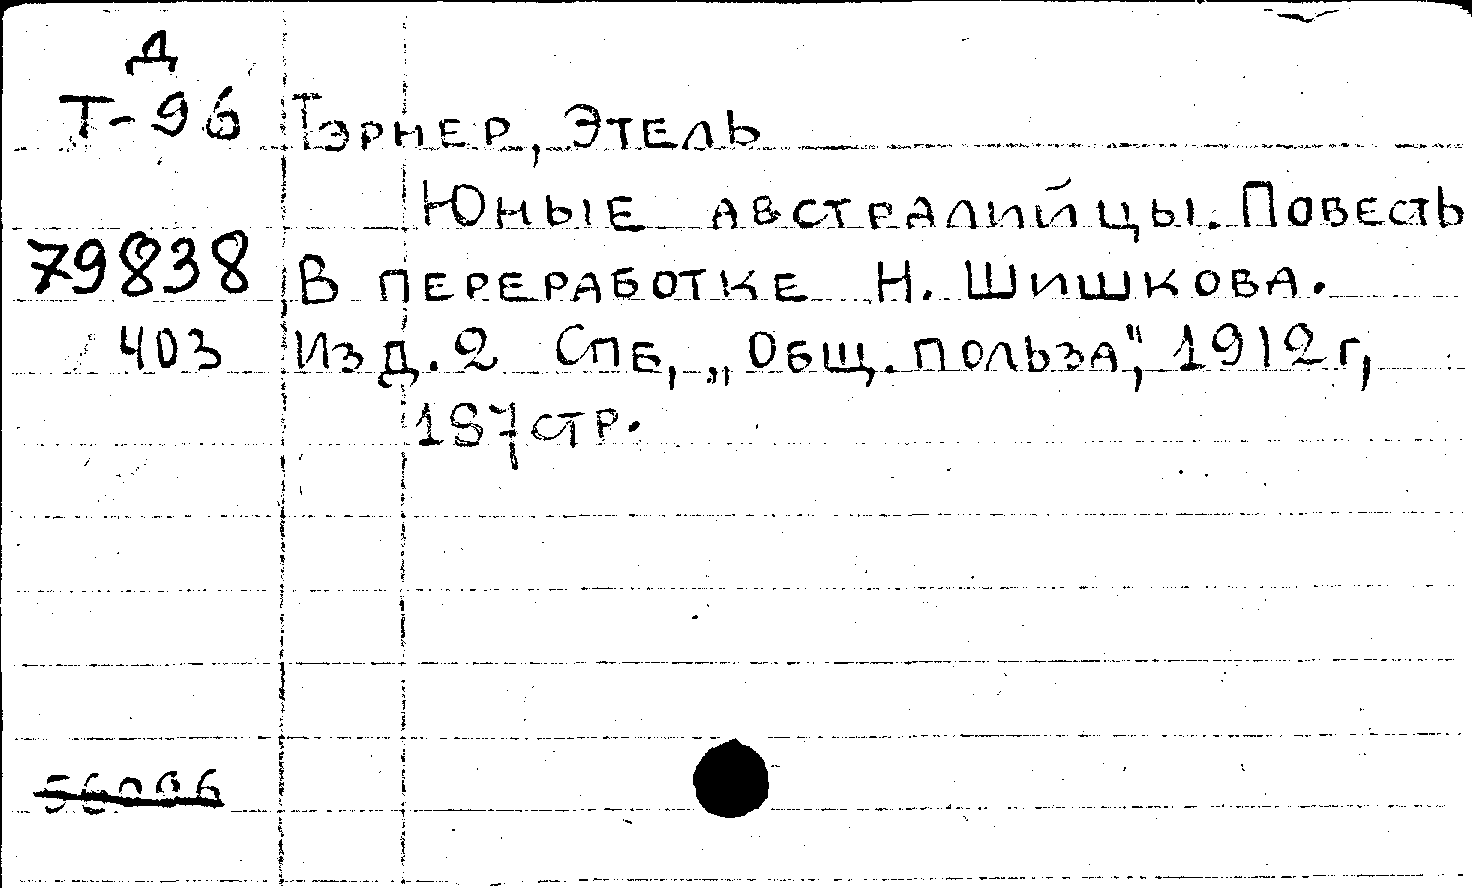 Д
Т-96 Тэрнер, Этель
Юные австралийцы. Повесть
79838 В переработке Н. Шишкова.
403 Изд. 2 Спб, „Общ. польза", 1912 г,
187 стр.